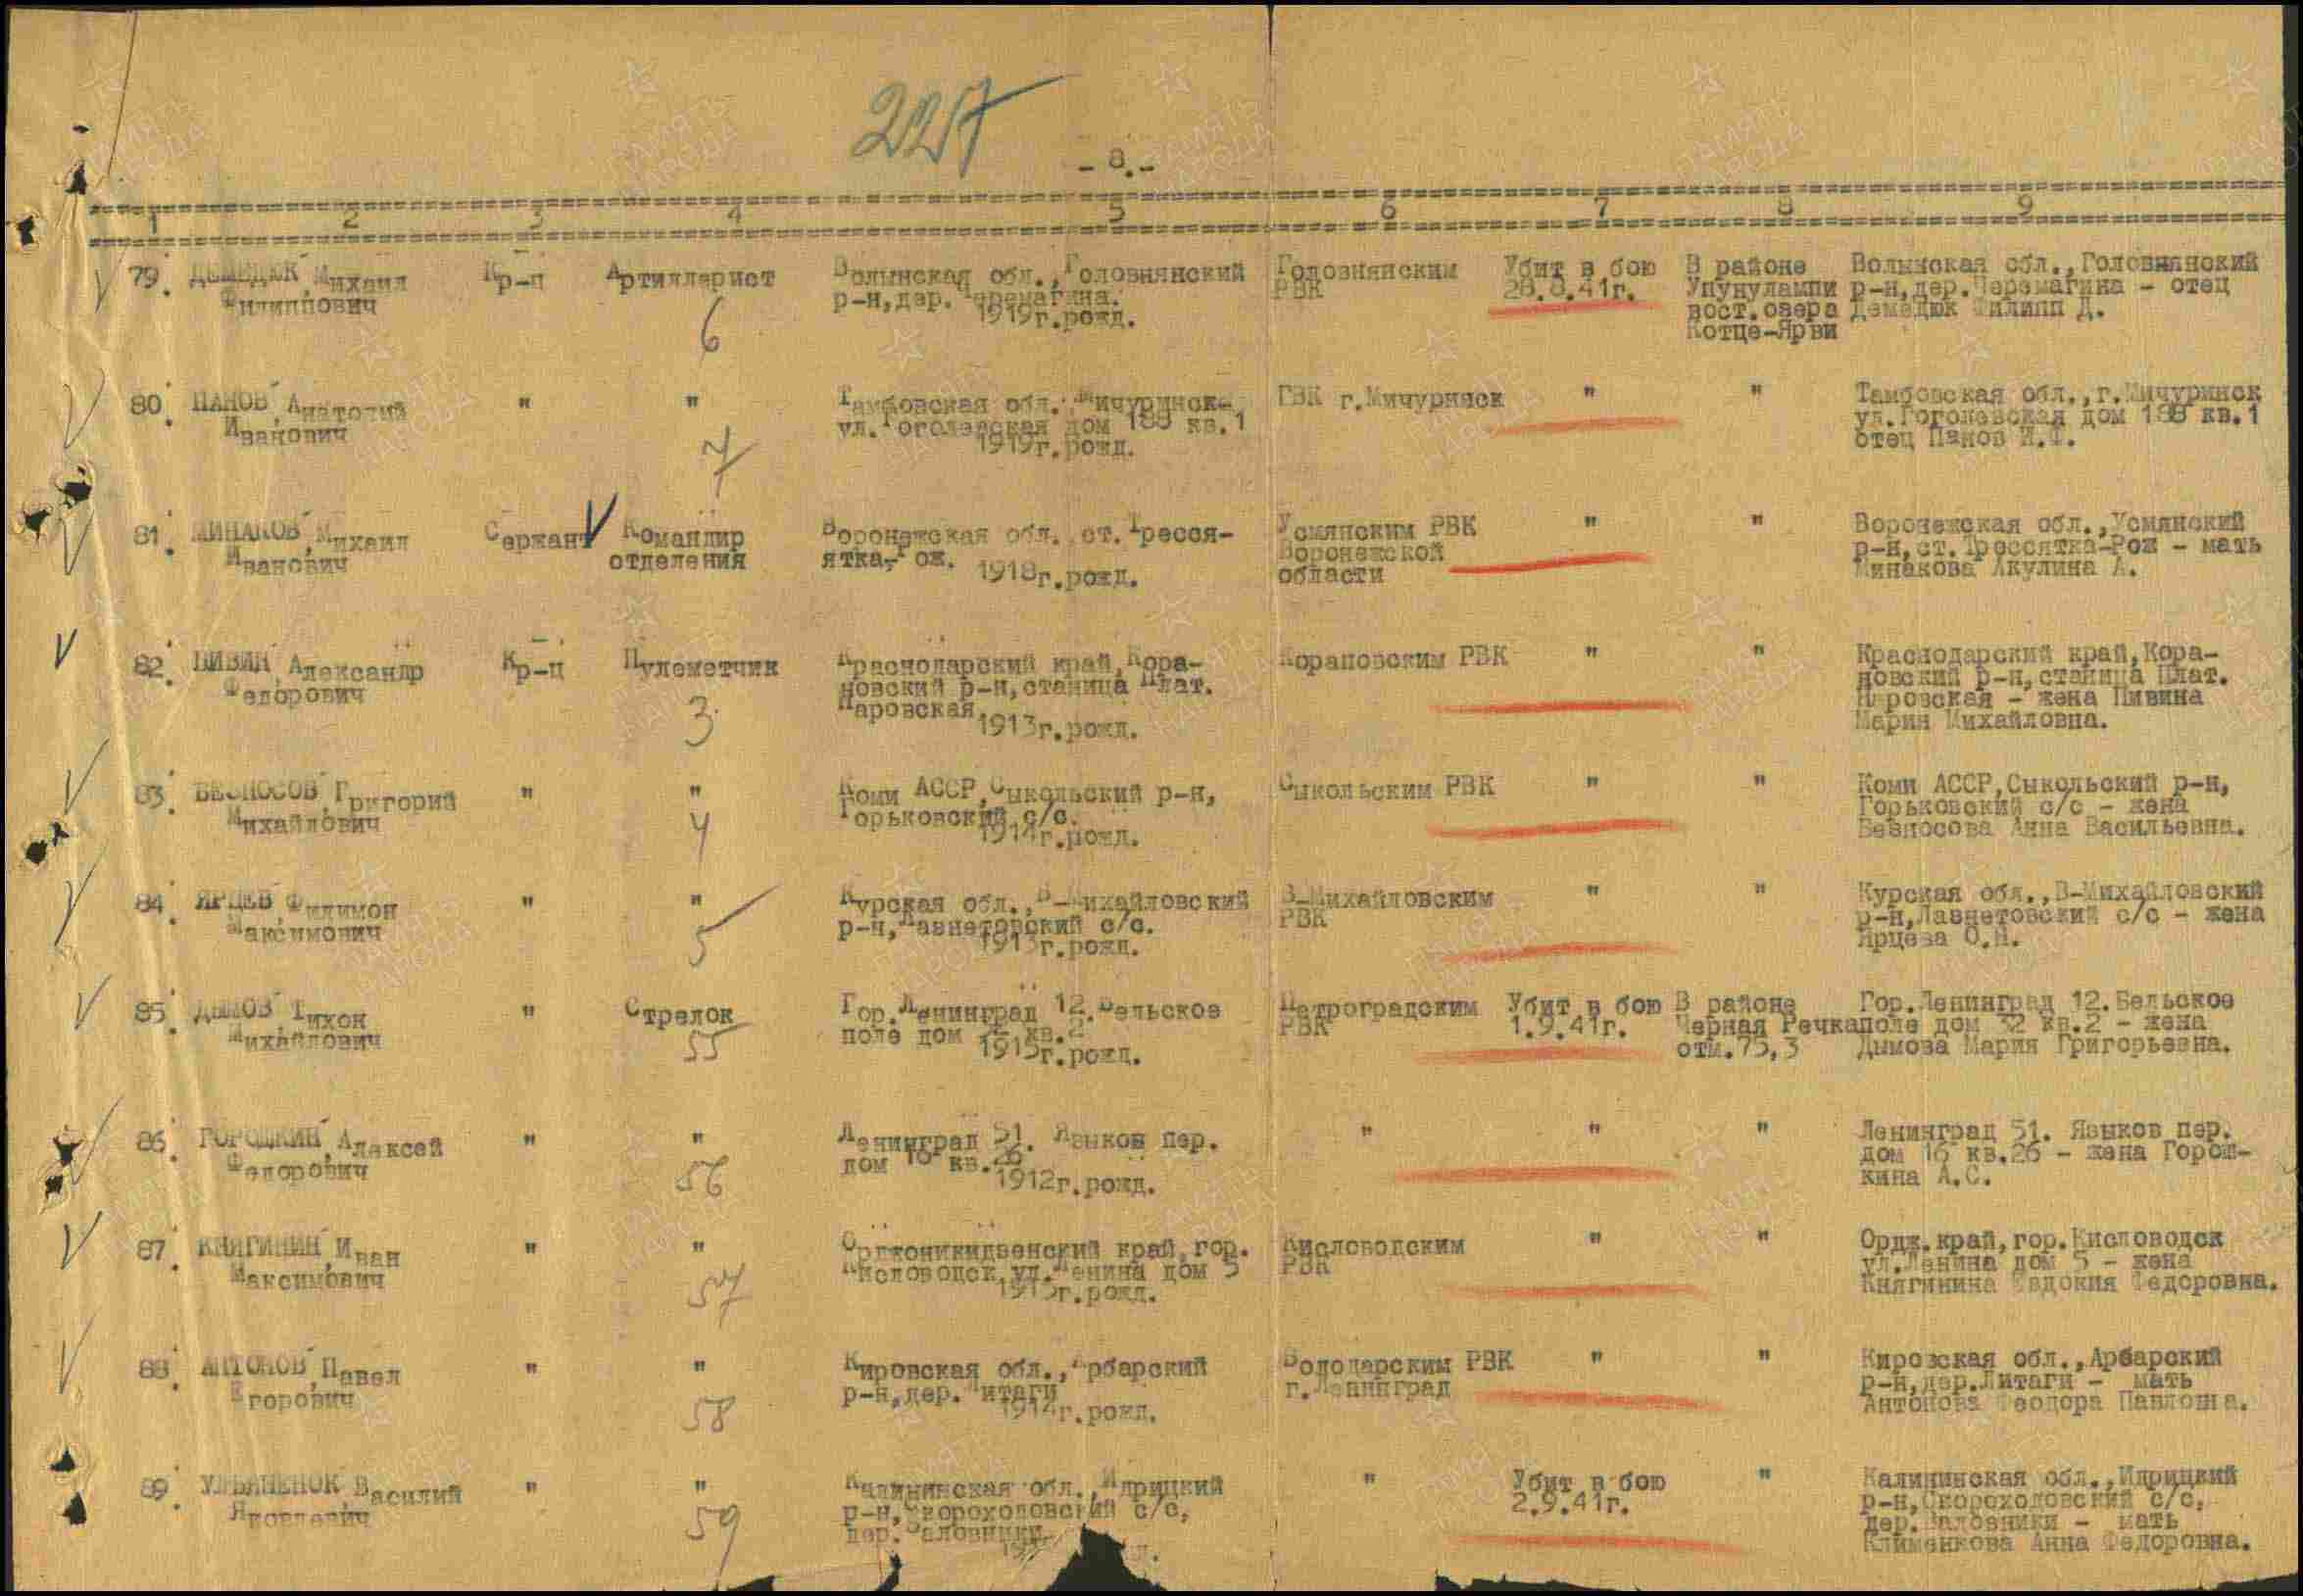 227
- 8.-
1 2 3 4 5 6 7 8 9
79. ДЕМЕДЮК Михаил Кр-ц Артиллерист Волынская обл., Головнянский Головнянским Убит в бою В районе Волынская обл., Головнянский
Филиппович р-н, дер. Черемагина. РВК 28.8.41г. Упунулампи р-н, дер. Черемагина - отец
1919г.рожд. вост. озера Демедюк Филипп Д.
6 Котце-Ярви
80. ПАНОВ Анатолий " " Тамбовская обл. Мичуринск- ГВК г.Мичуринск " " Тамбовская обл., г.Мичуринск
Иванович ул. Гоголевская дом 188 кв.1 ул.Гоголевская дом 188 кв.1
7 1919г.рожд. отец Панов И.Ф.
81. МИНАКОВ Михаил Сержант Командир Воронежская обл. ст. Тресся- Усмянским РВК " " Воронежская обл., Усмянский
Иванович отделения ятка-Рож. Воронежской р-н, ст. Трессятка-Рож - мать
1918г.рожд. области Минакова Акулина А.
82. ПИВИН Александр Кр-ц Пулеметчик Краснодарский край, Кора- Корановским РВК " " Краснодарский край, Кора-
Федорович новский р-н, станица Плат. новский р-н, станица Плат.
3 Наровская Наровская - жена Пивина
1913г.рожд. Мария Михайловна.
83. БЕЗНОСОВ Григорий " " Коми АССР, Сыкольский р-н, Сыкольским РВК " " Коми АССР, Сыкольский р-н,
Михайлович Горьковский с/с. Горьковский с/с - жена
4 1914г.рожд. Безносова Анна Васильевна.
84. ЯРЦЕВ Филимон " " Курская обл., В-Михайловский В-Михайловским " " Курская обл., В-Михайловский
Максимович р-н, Лавнетовский с/с. РВК р-н, Лавнетовский с/с - жена
5 1913г.рожд. Ярцева О.Н.
85. ДЫМОВ Тихон " Стрелок Гор. Ленинград 12. Бельское Петроградским Убит в бою В районе Гор.Ленинград 12.Бельское
Михайлович 55 поле дом 32 кв.2 РВК 1.9.41г. Черная Речка поле дом 32 кв.2 - жена
1915г.рожд. отм.75,3 Дымова Мария Григорьевна.
86. ГОРОШКИН Алексей " " Ленинград 51. Языков пер. " " " Ленинград 51. Языков пер.
Федорович 56 дом 16 кв.26 дом 16 кв.26 - жена Горош-
1912г.рожд. кина А.С.
87. КНЯГИНИН Иван " " Орджоникидзенский край, гор. Кисловодским " " Ордж.край, гор.Кисловодск
Максимович Кисловодск, ул. Ленина дом 5 РВК ул.Ленина дом 5 - жена
57 1915г.рожд. Княгинина Евдокия Федоровна.
88. АНТОНОВ Павел " " Кировская обл., Арбарский Володарским РВК " " Кировская обл., Арбарский
Егорович р-н, дер. Литаги г.Ленинград р-н, дер.Литаги - мать
58 1914г.рожд. Антонова Феодора Павловна.
89. УЛЬЯНЕНОК Василий " " Калининская обл., Идрицкий " Убит в бою " Калининская обл., Идрицкий
Яковлевич р-н, Скороходовский с/с, 2.9.41г. р-н, Скороходовский с/с,
59 дер. Заловники дер. Заловники - мать
Клименкова Анна Федоровна.